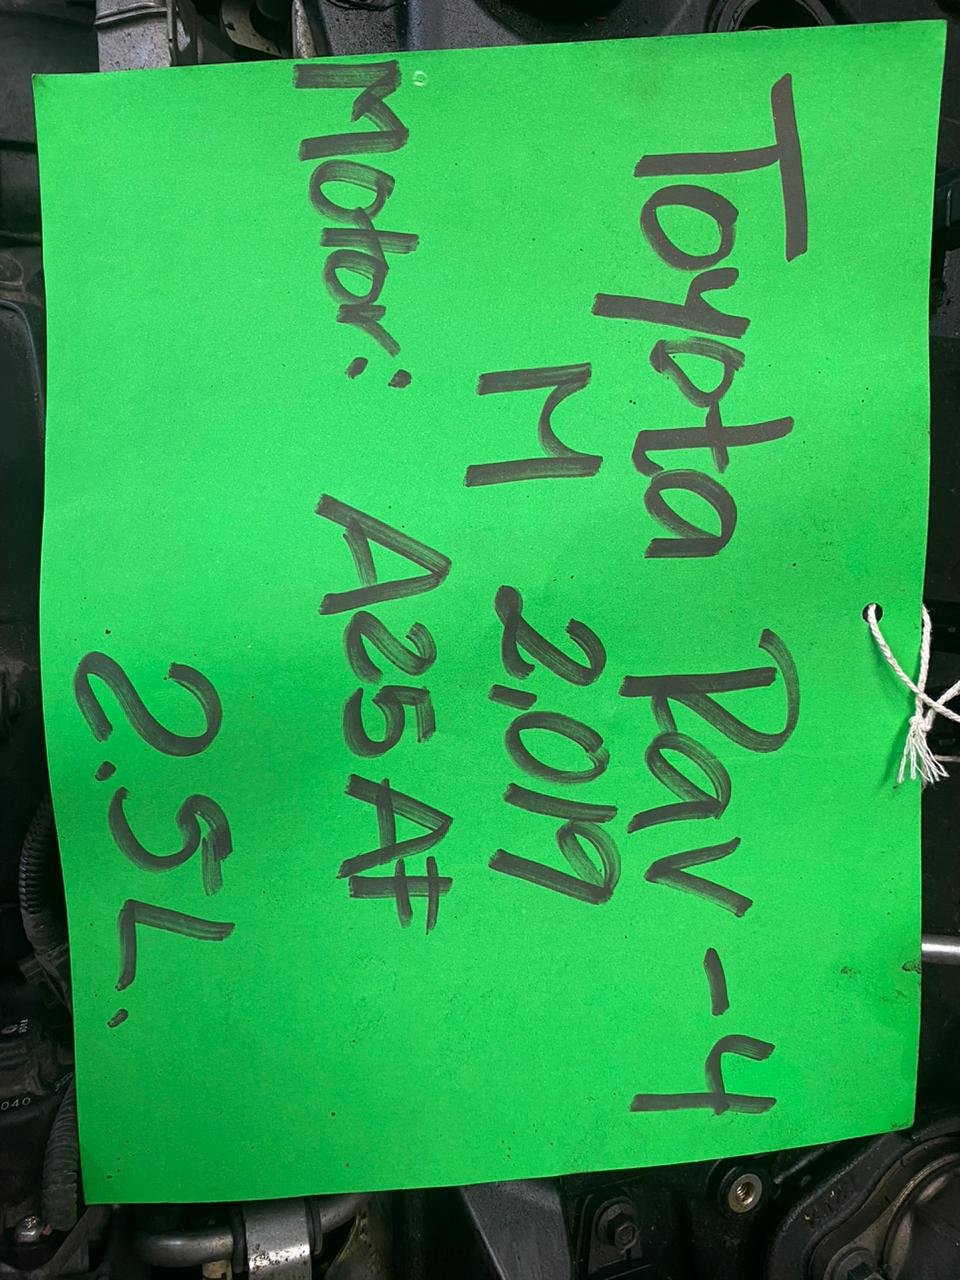 Toyota Rav-4
M 2,019
Motor: A25 Af
2.5 L.
040